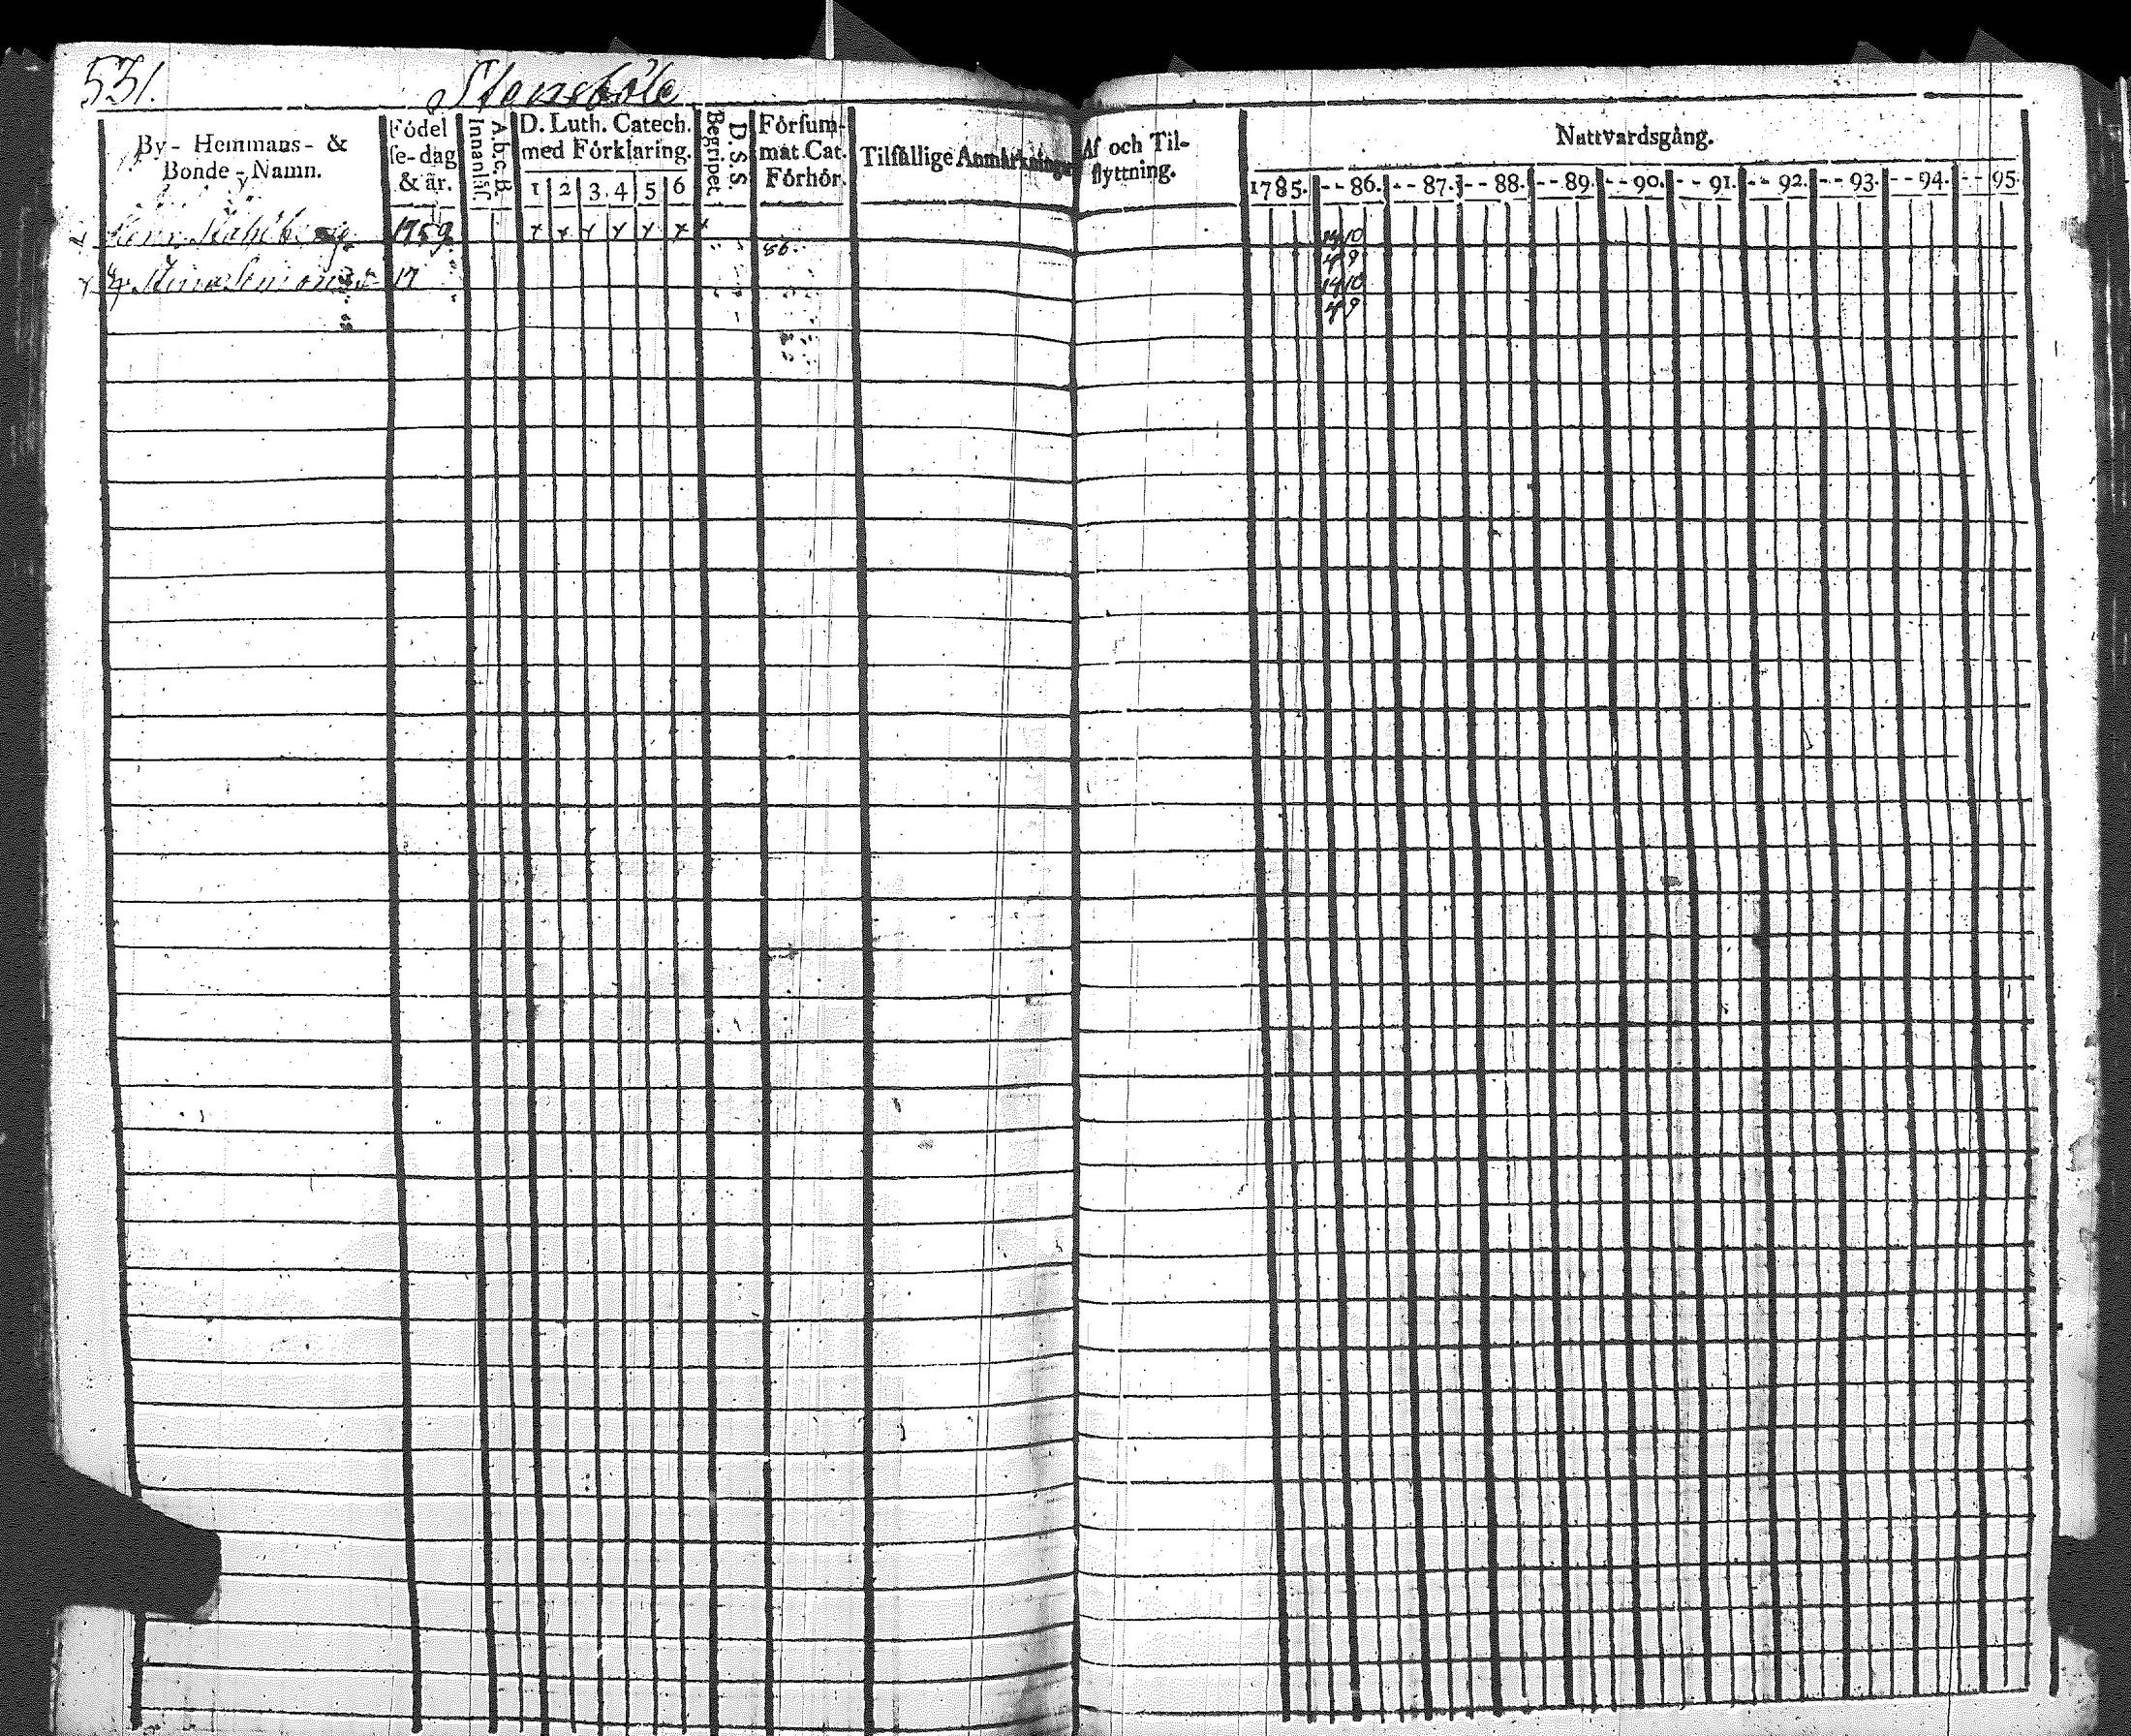 531.
Stensböle
By- Hemmans- &
Bonde-Namn.
Födel
se-dag
& år.
A.b.c.B.
Innanläs.
D. Luth. Catech.
med Förklaring.
1 2 3 4 5 6
D. S. S.
Begripet.
Försum-
mat Cat.
Förhör.
Tilfällige Anmärkningar
Af och Til-
flyttning.
Nattvardsgång.
1785. - - 86. - - 87. - - 88. - - 89. - - 90. - - 91. - - 92. - - 93. - - 94. - - 95.
1759 x x x x x x 86. 10
9
17 10
9